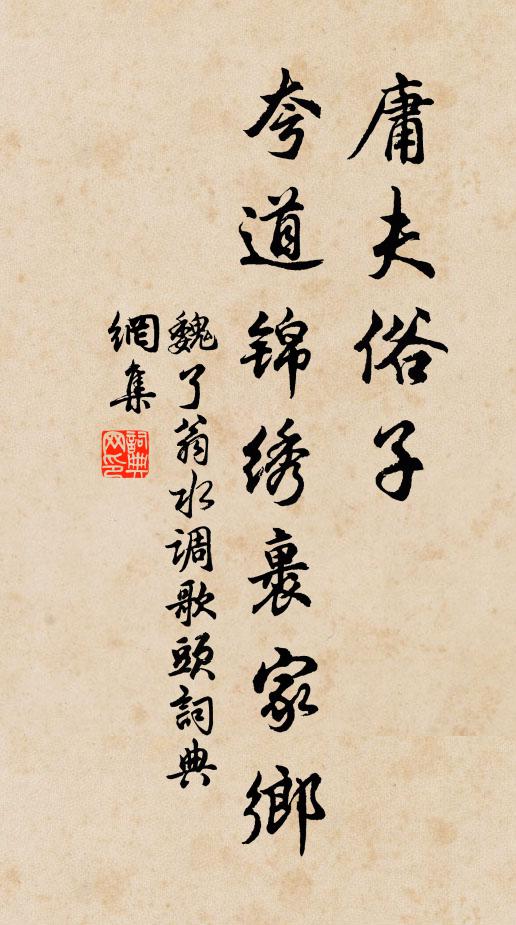 庸夫俗子
夸道锦绣裹家鄉
魏了翁水调歌頭詞典
網集
詞典网印